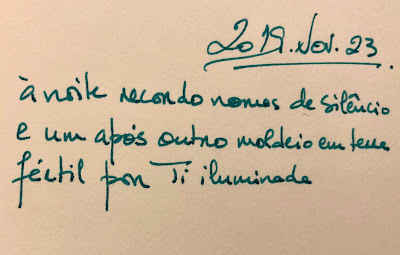 2019.Nov.23
à noite recordo nomes de silêncio
e um após outro moldeio em terra
fértil por Ti iluminada